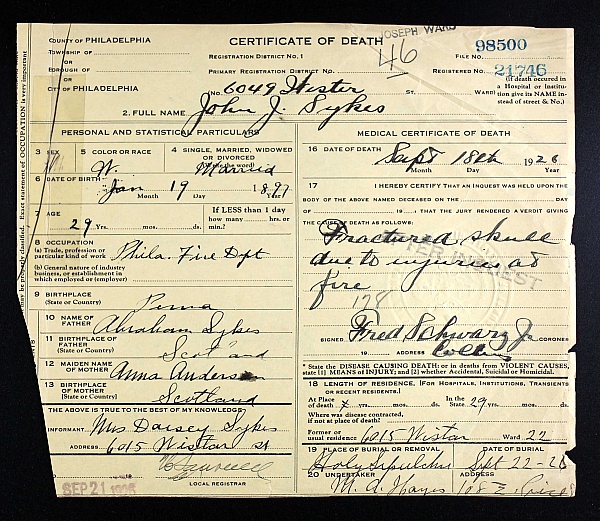 COUNTY OF PHILADELPHIA
TOWNSHIP OF
OR
BOROUGH OF
OR
CITY OF PHILADELPHIA
CERTIFICATE OF DEATH
REGISTRATION DISTRICT NO. 1
PRIMARY REGISTRATION DISTRICT NO.
JOSEPH WARD
46
FILE NO. 98500
REGISTERED NO. 21746
(If death occured in
a Hospital or Institu-
tion give its NAME in-
stead of street & No.)
NO. 6049 Wister ST. WARD
2. FULL NAME John J. Sykes
PERSONAL AND STATISTICAL PARTICULARS
3 SEX
5 COLOR OR RACE
W.
4 SINGLE, MARRIED, WIDOWED
OR DIVORCED
(Write the word)
Married
6 DATE OF BIRTH
Jan 19 1897
Month Day Year
7 AGE
29 Yrs. mos. ds.
If LESS than 1 day
how many hrs. or
min.
8 OCCUPATION
(a) Trade, profession or
particular kind of work
Phila. Fire Dpt
(b) General nature of industry
business, or establishment in
which employed (or employer)
9 BIRTHPLACE
(State or Country)
Penna
10 NAME OF
FATHER
Abraham Sykes
11 BIRTHPLACE OF
FATHER
(State or Country)
Scotland
12 MAIDEN NAME
OF MOTHER
Anna Anderson
13 BIRTHPLACE
OF MOTHER
(State or Country)
Scotland
THE ABOVE IS TRUE TO THE BEST OF MY KNOWLEDGE
INFORMANT Mrs Daisey Sykes
ADDRESS 6015 Wistar st
SEP 21
LOCAL REGISTRAR
MEDICAL CERTIFICATE OF DEATH
16 DATE OF DEATH
Sept 18th 1926
Month Day Year
17 I HEREBY CERTIFY THAT AN INQUEST WAS HELD UPON THE
BODY OF THE ABOVE NAMED DECEASED ON THE DAY
OF 19 THAT THE JURY RENDERED A VERDICT GIVING
THE CAUSE OF DEATH AS FOLLOWS:
Fractured skull
due to injuries at
fire
178
SIGNED Fred Schwarz Jr CORONER
19 ADDRESS
* State the DISEASE CAUSING DEATH; or in deaths from VIOLENT CAUSES,
state (1) MEANS OF INJURY; and (2) whether Accidental, Suicidal or Homicidal.
18 LENGTH OF RESIDENCE. (FOR HOSPITALS, INSTITUTIONS, TRANSIENTS
OR RECENT RESIDENTS.)
At Place
of death yrs. mos. ds. In the
State 29 yrs. mos. ds.
Where was disease contracted,
if not at place of death?
Former or
usual residence 6015 Wistar Ward 22
19 PLACE OF BURIAL OR REMOVAL DATE OF BURIAL
Holy Sepulchre Sept 22-26
20 UNDERTAKER ADDRESS
M. A. Hayes 108 E.